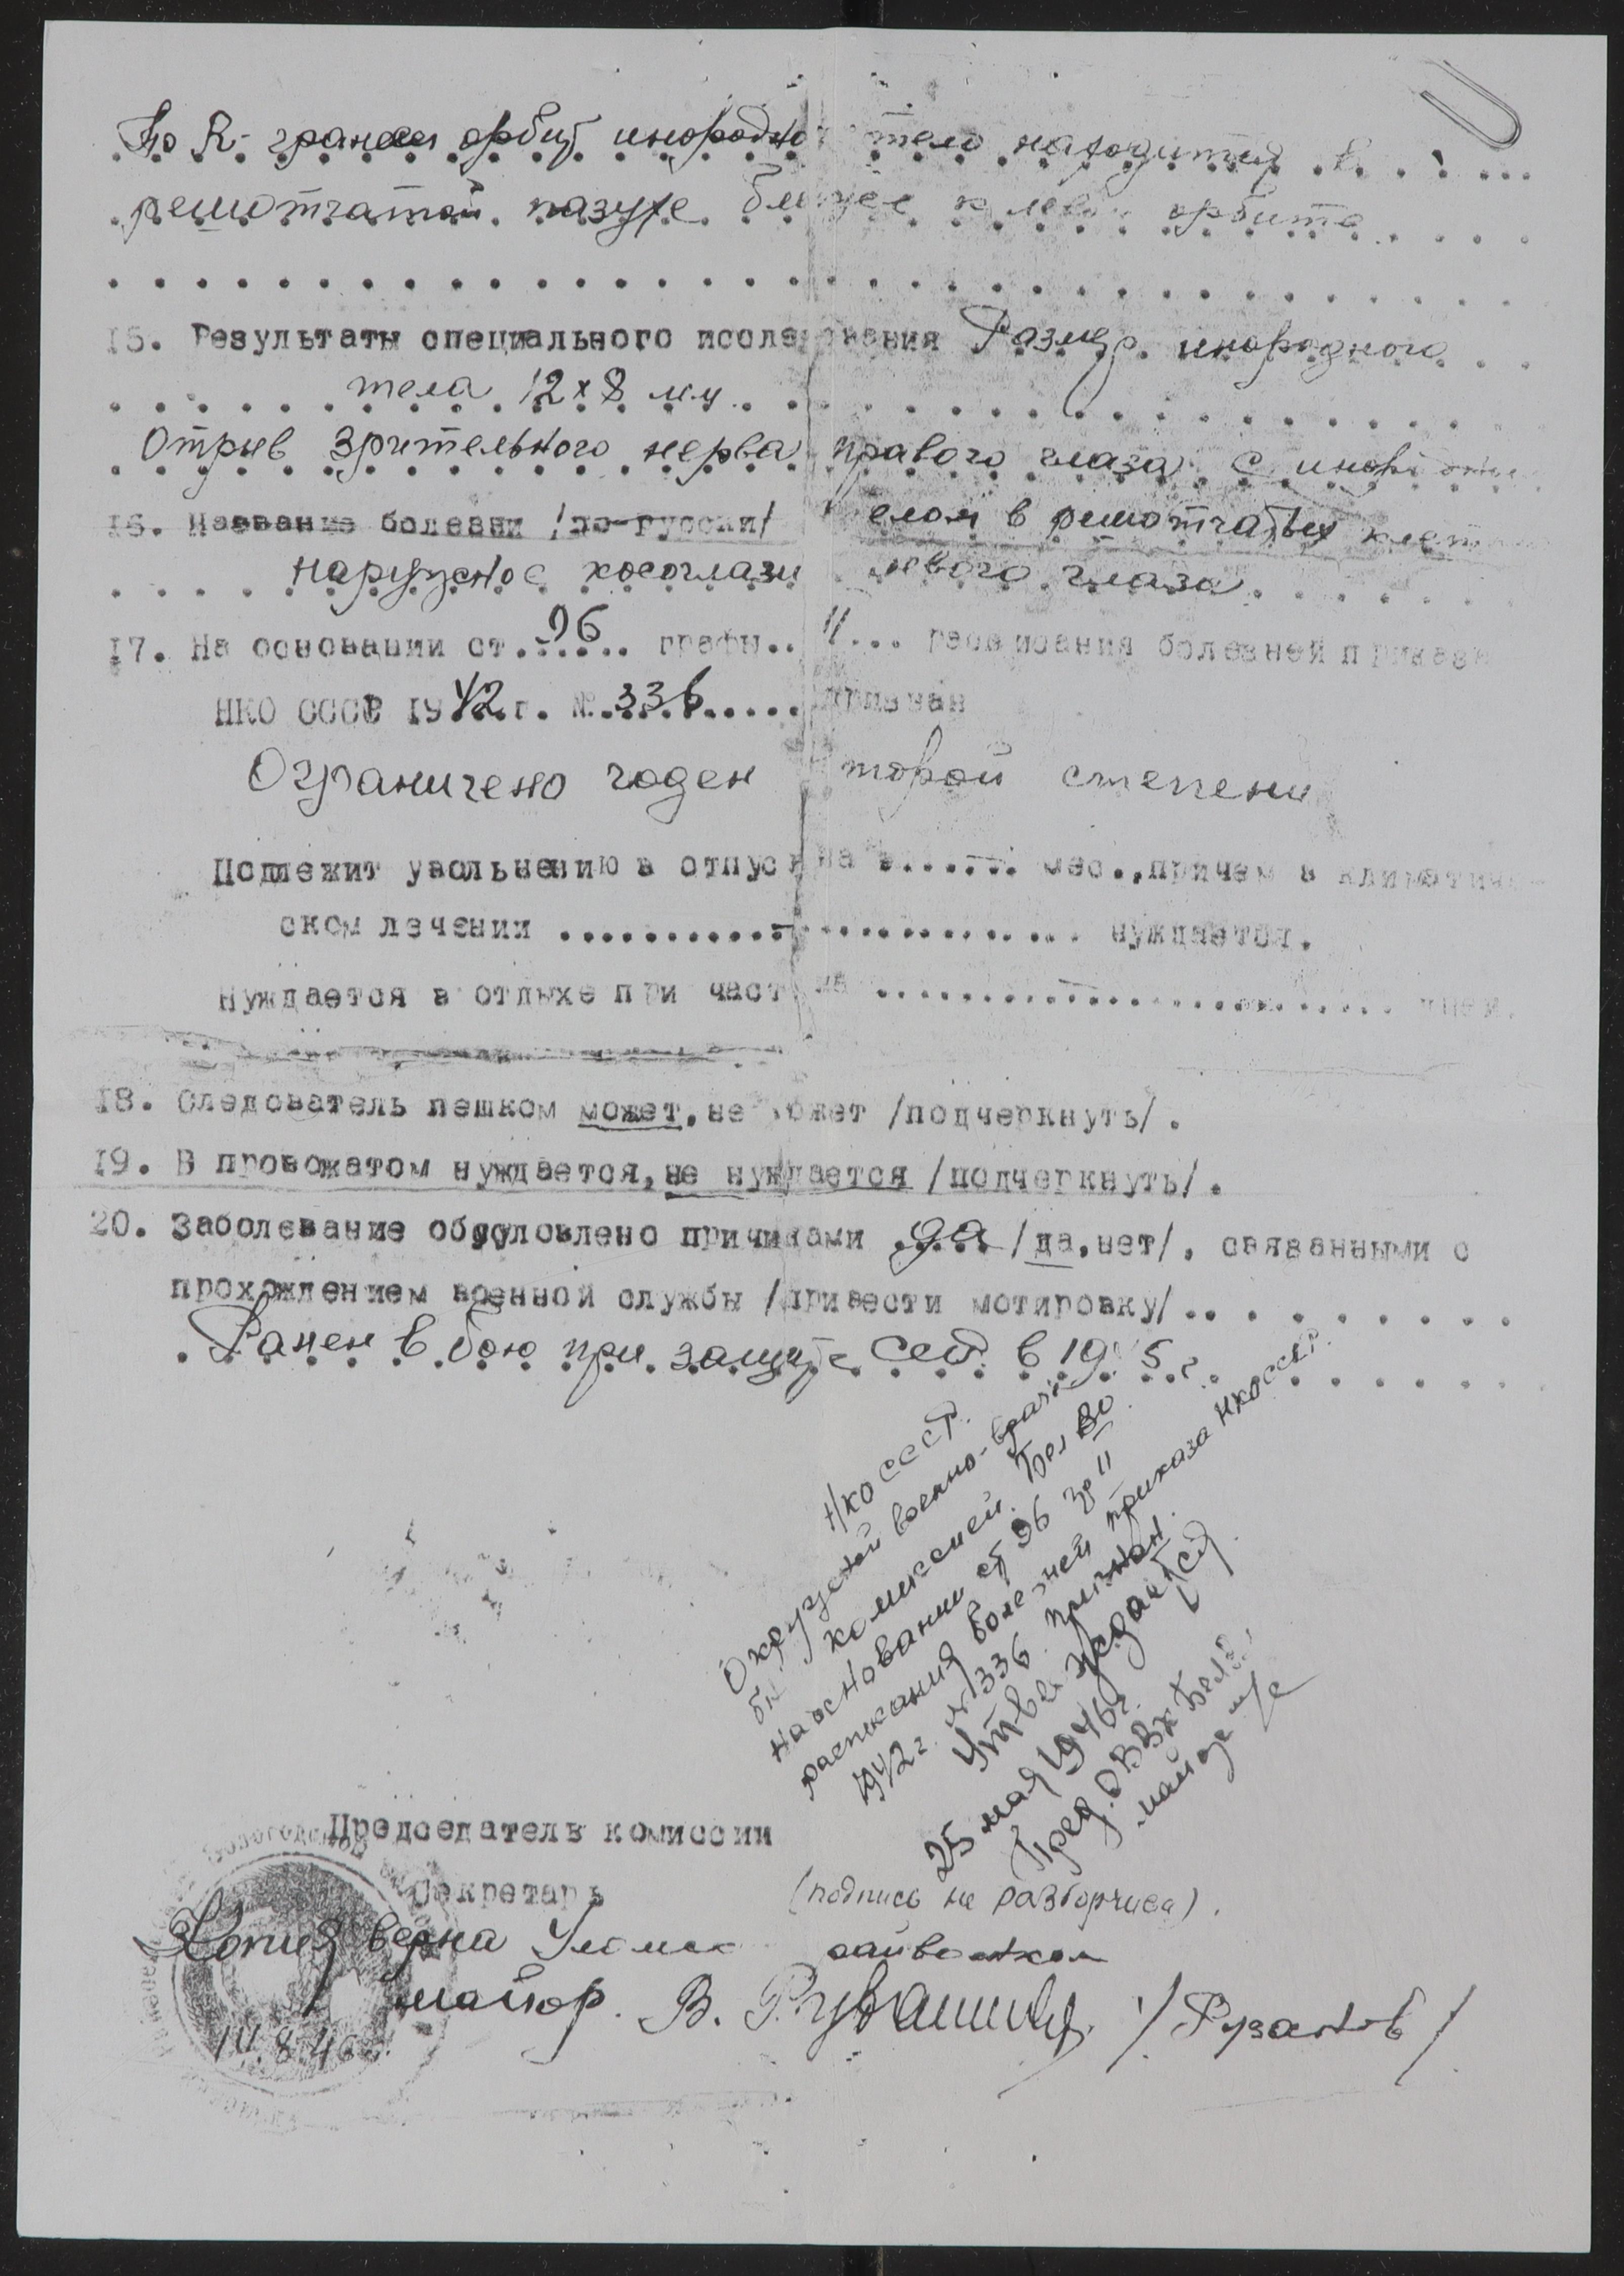 По R-грамм орбит инородно тело находится в
решотчатой пазухе ближе к лев орбите
15. Результаты специального исследования Размер инородного
тела 12х8 мм
Отрыв зрительного нерва правого глаза с инородны
16. Название болезни /по-русски/ елом в решотчатых клет
наружное косоглази левого глаза
17. На основании ст. 96 графы II расписания болезней приказа
НКО СССР 1942 г. № 336 признан
Ограничено годен торой степени
Подлежит увольнению в отпуск на мес., причем в климатиче-
ском лечении нуждается.
Нуждается в отдыхе при част на дней.
18. Следователь пешком может, не может /подчеркнуть/.
19. В провожатом нуждается, не нуждается /подчеркнуть/.
20. Заболевание обусловлено причинами да /да, нет/, связанными с
прохождением военной службы /привести мотировку/
Ранен в бою при защите СССР в 19 5 г.
НКО СССР.
Окружной военно-врач
комиссией БелВО
На основании ст 96 гр II
расписания болезней приказа НКО СССР.
1942 г. № 336 признан.
Утверждается.
25 мая 1946 г.
Пред. ОВВК БелВО
майор м/с
Председатель комиссии
Секретарь (подпись не разборчива).
Копия верна
майор. В. /Рузанов/
14.8.46 г.